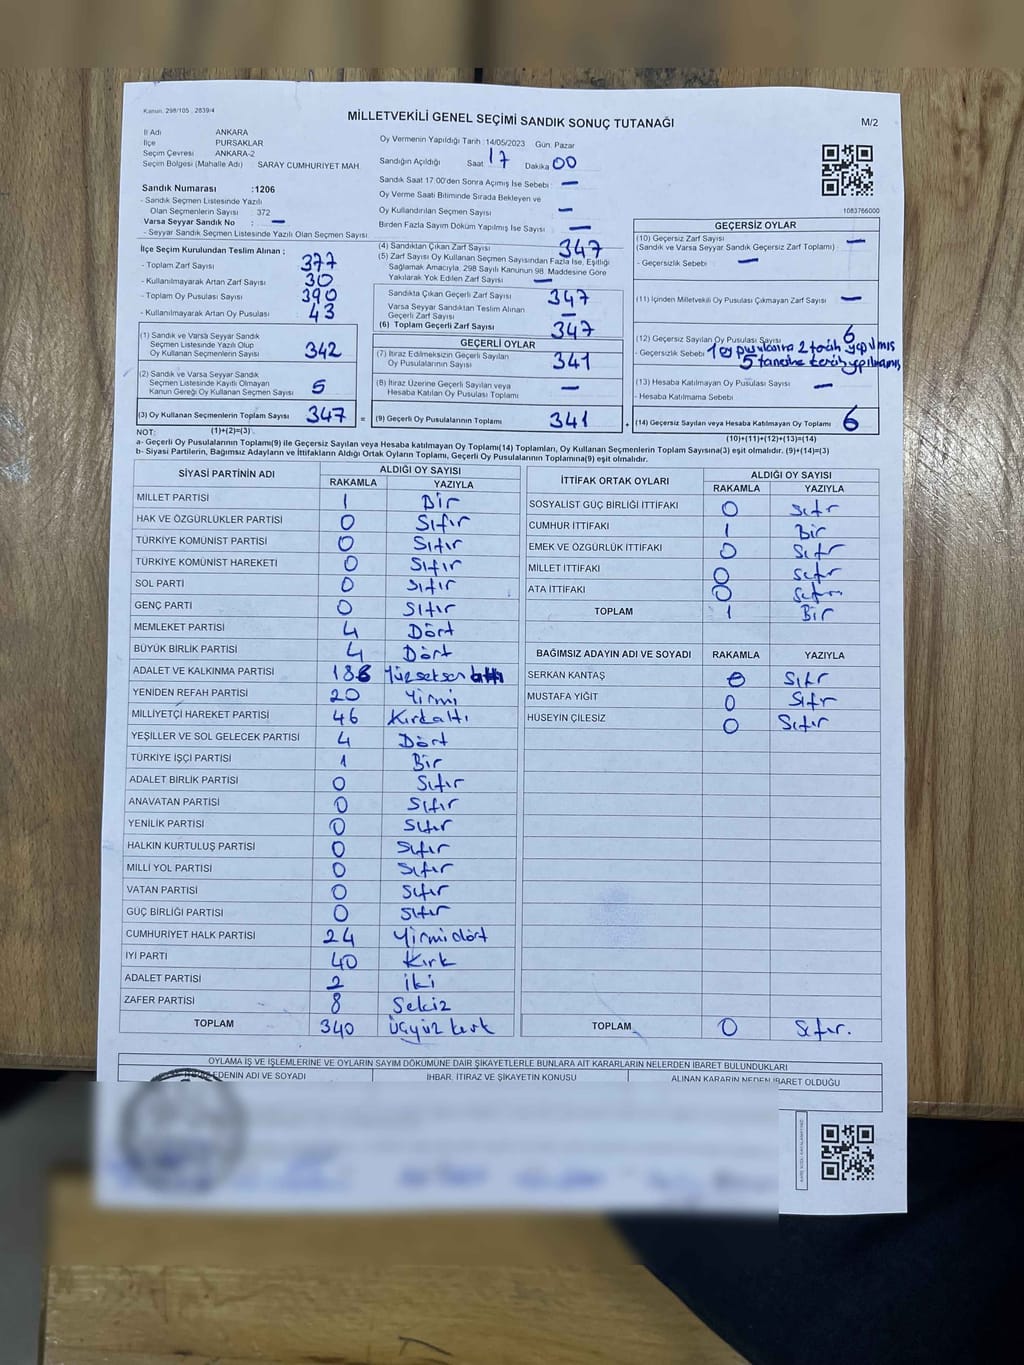 Kanun, 298/105 , 2839/4
MİLLETVEKİLİ GENEL SEÇİMİ SANDIK SONUÇ TUTANAĞI
M/2
İl Adı ANKARA
İlçe PURSAKLAR
Seçim Çevresi ANKARA-2
Seçim Bölgesi (Mahalle Adı) SARAY CUMHURİYET MAH.
Oy Vermenin Yapıldığı Tarih 14/05/2023 Gün. Pazar
Sandığın Açıldığı Saat 17 Dakika 00
Sandık Saat 17:00'den Sonra Açımış İse Sebebi : —
Oy Verme Saati Bitiminde Sırada Bekleyen ve
Oy Kullandırılan Seçmen Sayısı —
Birden Fazla Sayım Döküm Yapılmış İse Sayısı —
1083766000
Sandık Numarası :1206
- Sandık Seçmen Listesinde Yazılı
Olan Seçmenlerin Sayısı : 372
Varsa Seyyar Sandık No : —
- Seyyar Sandık Seçmen Listesinde Yazılı Olan Seçmen Sayısı
İlçe Seçim Kurulundan Teslim Alınan ;
- Toplam Zarf Sayısı 377
- Kullanılmayarak Artan Zarf Sayısı 30
- Toplam Oy Pusulası Sayısı 390
- Kullanılmayarak Artan Oy Pusulası 43
(1) Sandık ve Varsa Seyyar Sandık
Seçmen Listesinde Yazılı Olup
Oy Kullanan Seçmenlerin Sayısı 342
(2) Sandık ve Varsa Seyyar Sandık
Seçmen Listesinde Kayıtlı Olmayan
Kanun Gereği Oy Kullanan Seçmen Sayısı 5
(3) Oy Kullanan Seçmenlerin Toplam Sayısı 347 =
(4) Sandıktan Çıkan Zarf Sayısı 347
(5) Zarf Sayısı Oy Kullanan Seçmen Sayısından Fazla İse, Eşitliği
Sağlamak Amacıyla, 298 Sayılı Kanunun 98. Maddesine Göre
Yakılarak Yok Edilen Zarf Sayısı —
Sandıkta Çıkan Geçerli Zarf Sayısı 347
Varsa Seyyar Sandıktan Teslim Alınan
Geçerli Zarf Sayısı —
(6) Toplam Geçerli Zarf Sayısı 347
GEÇERLİ OYLAR
(7) İtiraz Edilmeksizin Geçerli Sayılan
Oy Pusulasının Sayısı 341
(8) İtiraz Üzerine Geçerli Sayılan veya
Hesaba Katılan Oy Pusulası Toplamı —
(9) Geçerli Oy Pusulalarının Toplamı 341 +
GEÇERSİZ OYLAR
(10) Geçersiz Zarf Sayısı —
(Sandık ve Varsa Seyyar Sandık Geçersiz Zarf Toplamı)
- Geçersizlik Sebebi —
(11) İçinden Milletvekili Oy Pusulası Çıkmayan Zarf Sayısı —
(12) Geçersiz Sayılan Oy Pusulası Sayısı 6
- Geçersizlik Sebebi 1 oy pusulasına 2 tercih yapılmış
5 tanesine tercih yapılmamış
(13) Hesaba Katılmayan Oy Pusulası Sayısı —
- Hesaba Katılmama Sebebi
(14) Geçersiz Sayılan veya Hesaba Katılmayan Oy Toplamı 6
NOT: (1)+(2)=(3)
(10)+(11)+(12)+(13)=(14)
a- Geçerli Oy Pusulalarının Toplamı(9) ile Geçersiz Sayılan veya Hesaba katılmayan Oy Toplamı(14) Toplamları, Oy Kullanan Seçmenlerin Toplam Sayısına(3) eşit olmalıdır. (9)+(14)=(3)
b- Siyasi Partilerin, Bağımsız Adayların ve İttifakların Aldığı Ortak Oyların Toplamı, Geçerli Oy Pusulalarının Toplamına(9) eşit olmalıdır.
SİYASİ PARTİNİN ADI ALDIĞI OY SAYISI
RAKAMLA YAZIYLA
MİLLET PARTİSİ 1 Bir
HAK VE ÖZGÜRLÜKLER PARTİSİ 0 Sıfır
TÜRKİYE KOMÜNİST PARTİSİ 0 Sıfır
TÜRKİYE KOMÜNİST HAREKETİ 0 Sıfır
SOL PARTİ 0 Sıfır
GENÇ PARTİ 0 Sıfır
MEMLEKET PARTİSİ 4 Dört
BÜYÜK BİRLİK PARTİSİ 4 Dört
ADALET VE KALKINMA PARTİSİ 186 Yüzseksen altı
YENİDEN REFAH PARTİSİ 20 Yirmi
MİLLİYETÇİ HAREKET PARTİSİ 46 Kırkaltı
YEŞİLLER VE SOL GELECEK PARTİSİ 4 Dört
TÜRKİYE İŞÇİ PARTİSİ 1 Bir
ADALET BİRLİK PARTİSİ 0 Sıfır
ANAVATAN PARTİSİ 0 Sıfır
YENİLİK PARTİSİ 0 Sıfır
HALKIN KURTULUŞ PARTİSİ 0 Sıfır
MİLLİ YOL PARTİSİ 0 Sıfır
VATAN PARTİSİ 0 Sıfır
GÜÇ BİRLİĞİ PARTİSİ 0 Sıfır
CUMHURİYET HALK PARTİSİ 24 Yirmidört
İYİ PARTİ 40 Kırk
ADALET PARTİSİ 2 İki
ZAFER PARTİSİ 8 Sekiz
TOPLAM 340 Üçyüz kırk
İTTİFAK ORTAK OYLARI ALDIĞI OY SAYISI
RAKAMLA YAZIYLA
SOSYALİST GÜÇ BİRLİĞİ İTTİFAKI 0 Sıfır
CUMHUR İTTİFAKI 1 Bir
EMEK VE ÖZGÜRLÜK İTTİFAKI 0 Sıfır
MİLLET İTTİFAKI 0 Sıfır
ATA İTTİFAKI 0 Sıfır
TOPLAM 1 Bir
BAĞIMSIZ ADAYIN ADI VE SOYADI RAKAMLA YAZIYLA
SERKAN KANTAŞ 0 Sıfır
MUSTAFA YİĞİT 0 Sıfır
HÜSEYİN ÇİLESİZ 0 Sıfır
TOPLAM 0 Sıfır.
OYLAMA İŞ VE İŞLEMLERİNE VE OYLARIN SAYIM DÖKÜMÜNE DAİR ŞİKAYETLERLE BUNLARA AİT KARARLARIN NELERDEN İBARET BULUNDUKLARI
EDENİN ADI VE SOYADI İHBAR, İTİRAZ VE ŞİKAYETİN KONUSU ALINAN KARARIN NEDEN İBARET OLDUĞU